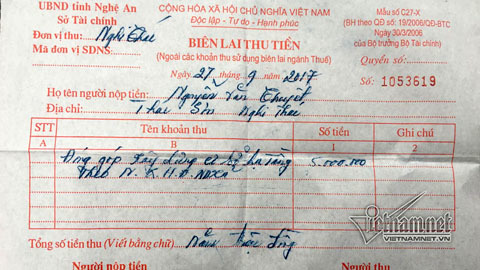 UBND tỉnh Nghệ An
Sở Tài chính
Đơn vị thu: Nghi Thái
Mã đơn vị SDNS:
CỘNG HÒA XÃ HỘI CHỦ NGHĨA VIỆT NAM
Độc lập - Tự do - Hạnh phúc
BIÊN LAI THU TIỀN
(Ngoài các khoản thu sử dụng biên lai ngành Thuế)
Ngày 27 tháng 9 năm 2017
Mẫu số C27-X
(BH theo QĐ số: 19/2006/QĐ-BTC
Ngày 30/3/2006
của Bộ trưởng Bộ Tài chính)
Quyển số:
Số: 1053619
Họ tên người nộp tiền: Nguyễn Văn Thuyết
Địa chỉ: Thái Sơn Nghi Thái
STT Tên khoản thu Số tiền Ghi chú
A B 1 2
Đóng góp xây dựng cơ sở hạ tầng 5.000.000
theo
Tổng số tiền thu (Viết bằng chữ) Năm triệu đồng
Người nộp tiền Người thu tiền
Vietnamnet
VIETNAMNET.VN